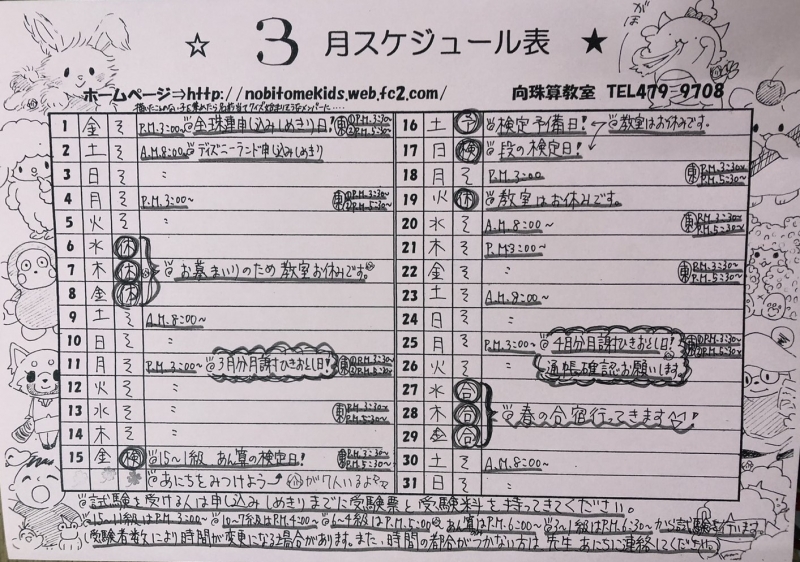 ☆ 3月スケジュール表 ★
がほ
ホームページ⇒http://nobitomekids.web.fc2.com/ 向珠算教室 TEL479-9708
1 金 そ P.M.3:00~ 全珠連申し込みしめきり日! 東 ①P.M.3:30~ ②P.M.5:30~
2 土 そ A.M.8:00~ ディズニーランド申し込みしめきり
3 日 そ 〃
4 月 そ P.M.3:00~ 東 ①P.M.3:30~ ②P.M.5:30~
5 火 そ 〃
6 水 休
7 木 休 お墓まいりのため教室お休みです。
8 金 休
9 土 そ A.M.8:00~
10 日 そ 〃
11 月 そ P.M.3:00~ 3月分月謝ひきおとし日! 東 ①P.M.3:30~ ②P.M.5:30~
12 火 そ 〃
13 水 そ 〃 東 P.M.3:30~ P.M.5:30~
14 木 そ 〃
15 金 検 15~1級、あん算の検定日!
あにちをみつけよう が7人いるよ
16 土 予 検定予備日! ← 教室はお休みです。
17 日 検 段の検定日!
18 月 そ P.M.3:00 東 P.M.3:30~ P.M.5:30~
19 火 休 教室はお休みです。
20 水 そ A.M.8:00~ 東 P.M.3:30~ P.M.5:30~
21 木 そ P.M.3:00~
22 金 そ 〃 東 P.M.3:30~ P.M.5:30~
23 土 そ A.M.8:00~
24 日 そ 〃
25 月 そ P.M.3:00~ 4月分月謝ひきおとし日! 東 ①P.M.3:30~ ②P.M.5:30~
26 火 そ 〃 通帳確認お願いします。
27 水 合
28 木 合 春の合宿行ってきます☆!
29 金 合
30 土 そ A.M.8:00~
31 日 そ 〃
試験を受ける人は申し込みしめきりまでに受験票と受験料を持ってきてください。
15~11級はP.M.3:00~ 10~7級はP.M.4:00~ 6~4級はP.M.5:00~ あん算はP.M.6:00~ 3~1級はP.M.6:30~から試験を行います。
受験者数により時間が変更になる場合があります。また、時間の都合がつかない方は、先生、あにちに連絡してください。